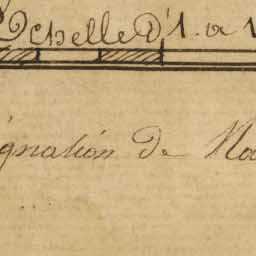 Echelle D'1. a 1
gnation de No